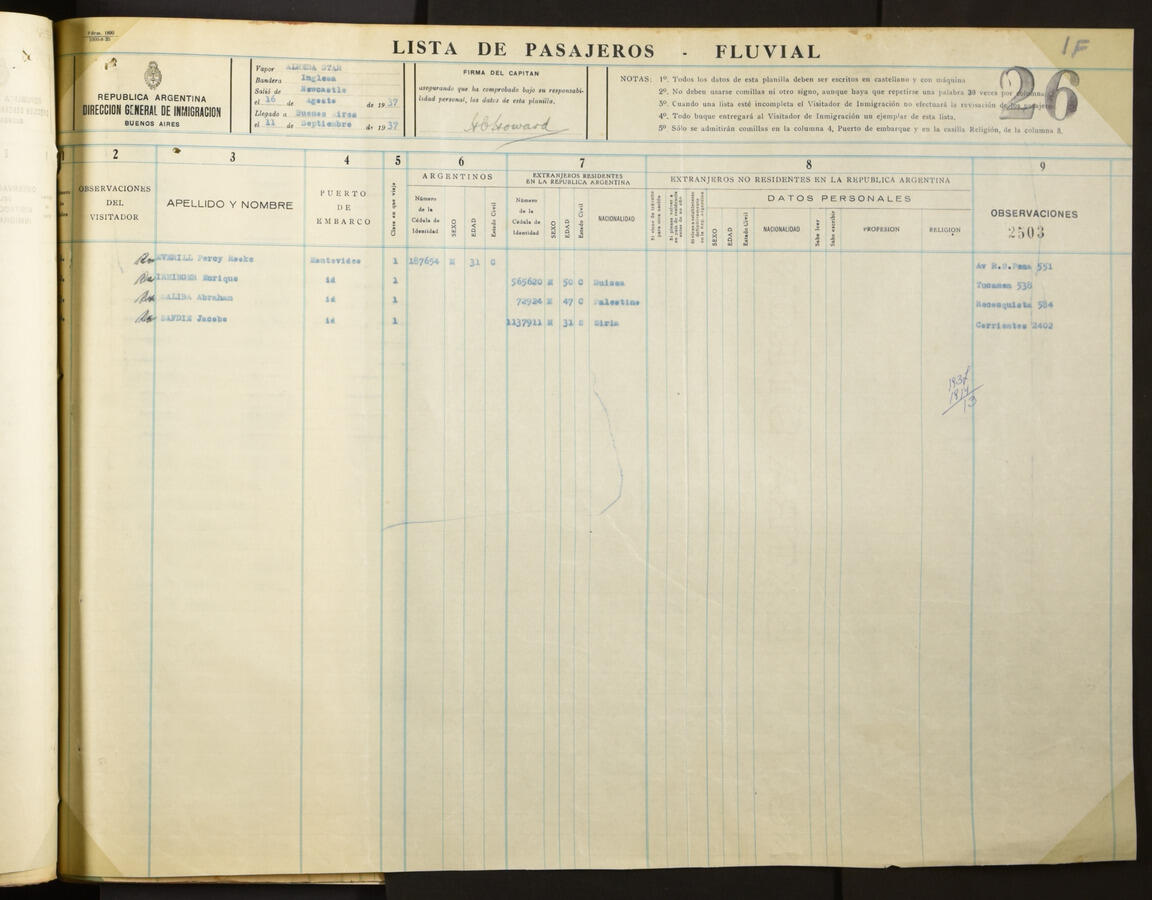 Fórm. 1890
LISTA DE PASAJEROS - FLUVIAL
1F
26
REPUBLICA ARGENTINA
DIRECCION GENERAL DE INMIGRACION
BUENOS AIRES
Vapor ALMEDA STAR
Bandera Inglesa
Salió de Newcastle
el 16 de Agosto de 1937
Llegado a Buenos Aires
el 11 de Septiembre de 1937
FIRMA DEL CAPITAN
asegurando que ha comprobado bajo su responsabi-
lidad personal, los datos de esta planilla.
H C Howard
NOTAS: 1º. Todos los datos de esta planilla deben ser escritos en castellano y con máquina
2º. No deben usarse comillas ni otro signo, aunque haya que repetirse una palabra 30 veces por columna.
3º. Cuando una lista esté incompleta el Visitador de Inmigración no efectuará la revisación de los pasajeros
4º. Todo buque entregará al Visitador de Inmigración un ejemplar de esta lista.
5º Sólo se admitirán comillas en la columna 4, Puerto de embarque y en la casilla Religión, de la columna 8.
1 2 3 4 5 6 7 8 9
OBSERVACIONES DEL VISITADOR
APELLIDO Y NOMBRE
PUERTO DE EMBARCO
Clase en que viaja
ARGENTINOS
Número de la Cédula de Identidad
SEXO
EDAD
Estado Civil
EXTRANJEROS RESIDENTES EN LA REPUBLICA ARGENTINA
Número de la Cédula de Identidad
SEXO
EDAD
Estado Civil
NACIONALIDAD
EXTRANJEROS NO RESIDENTES EN LA REPUBLICA ARGENTINA
DATOS PERSONALES
SEXO
EDAD
Estado Civil
NACIONALIDAD
Sabe leer
Sabe escribir
PROFESION
RELIGION
OBSERVACIONES
2503
AVERILL Percy Reeks Montevideo 1 187654 M 31 C Av R.S.Pena 551
Enrique id 1 565620 M 50 C Suissa Tucuman 538
SALIBA Abraham id 1 72924 M 47 C Palestino Reconquista 584
SAFDIE Jacobo id 1 1137911 M 31 S Siria Corrientes 2402
13